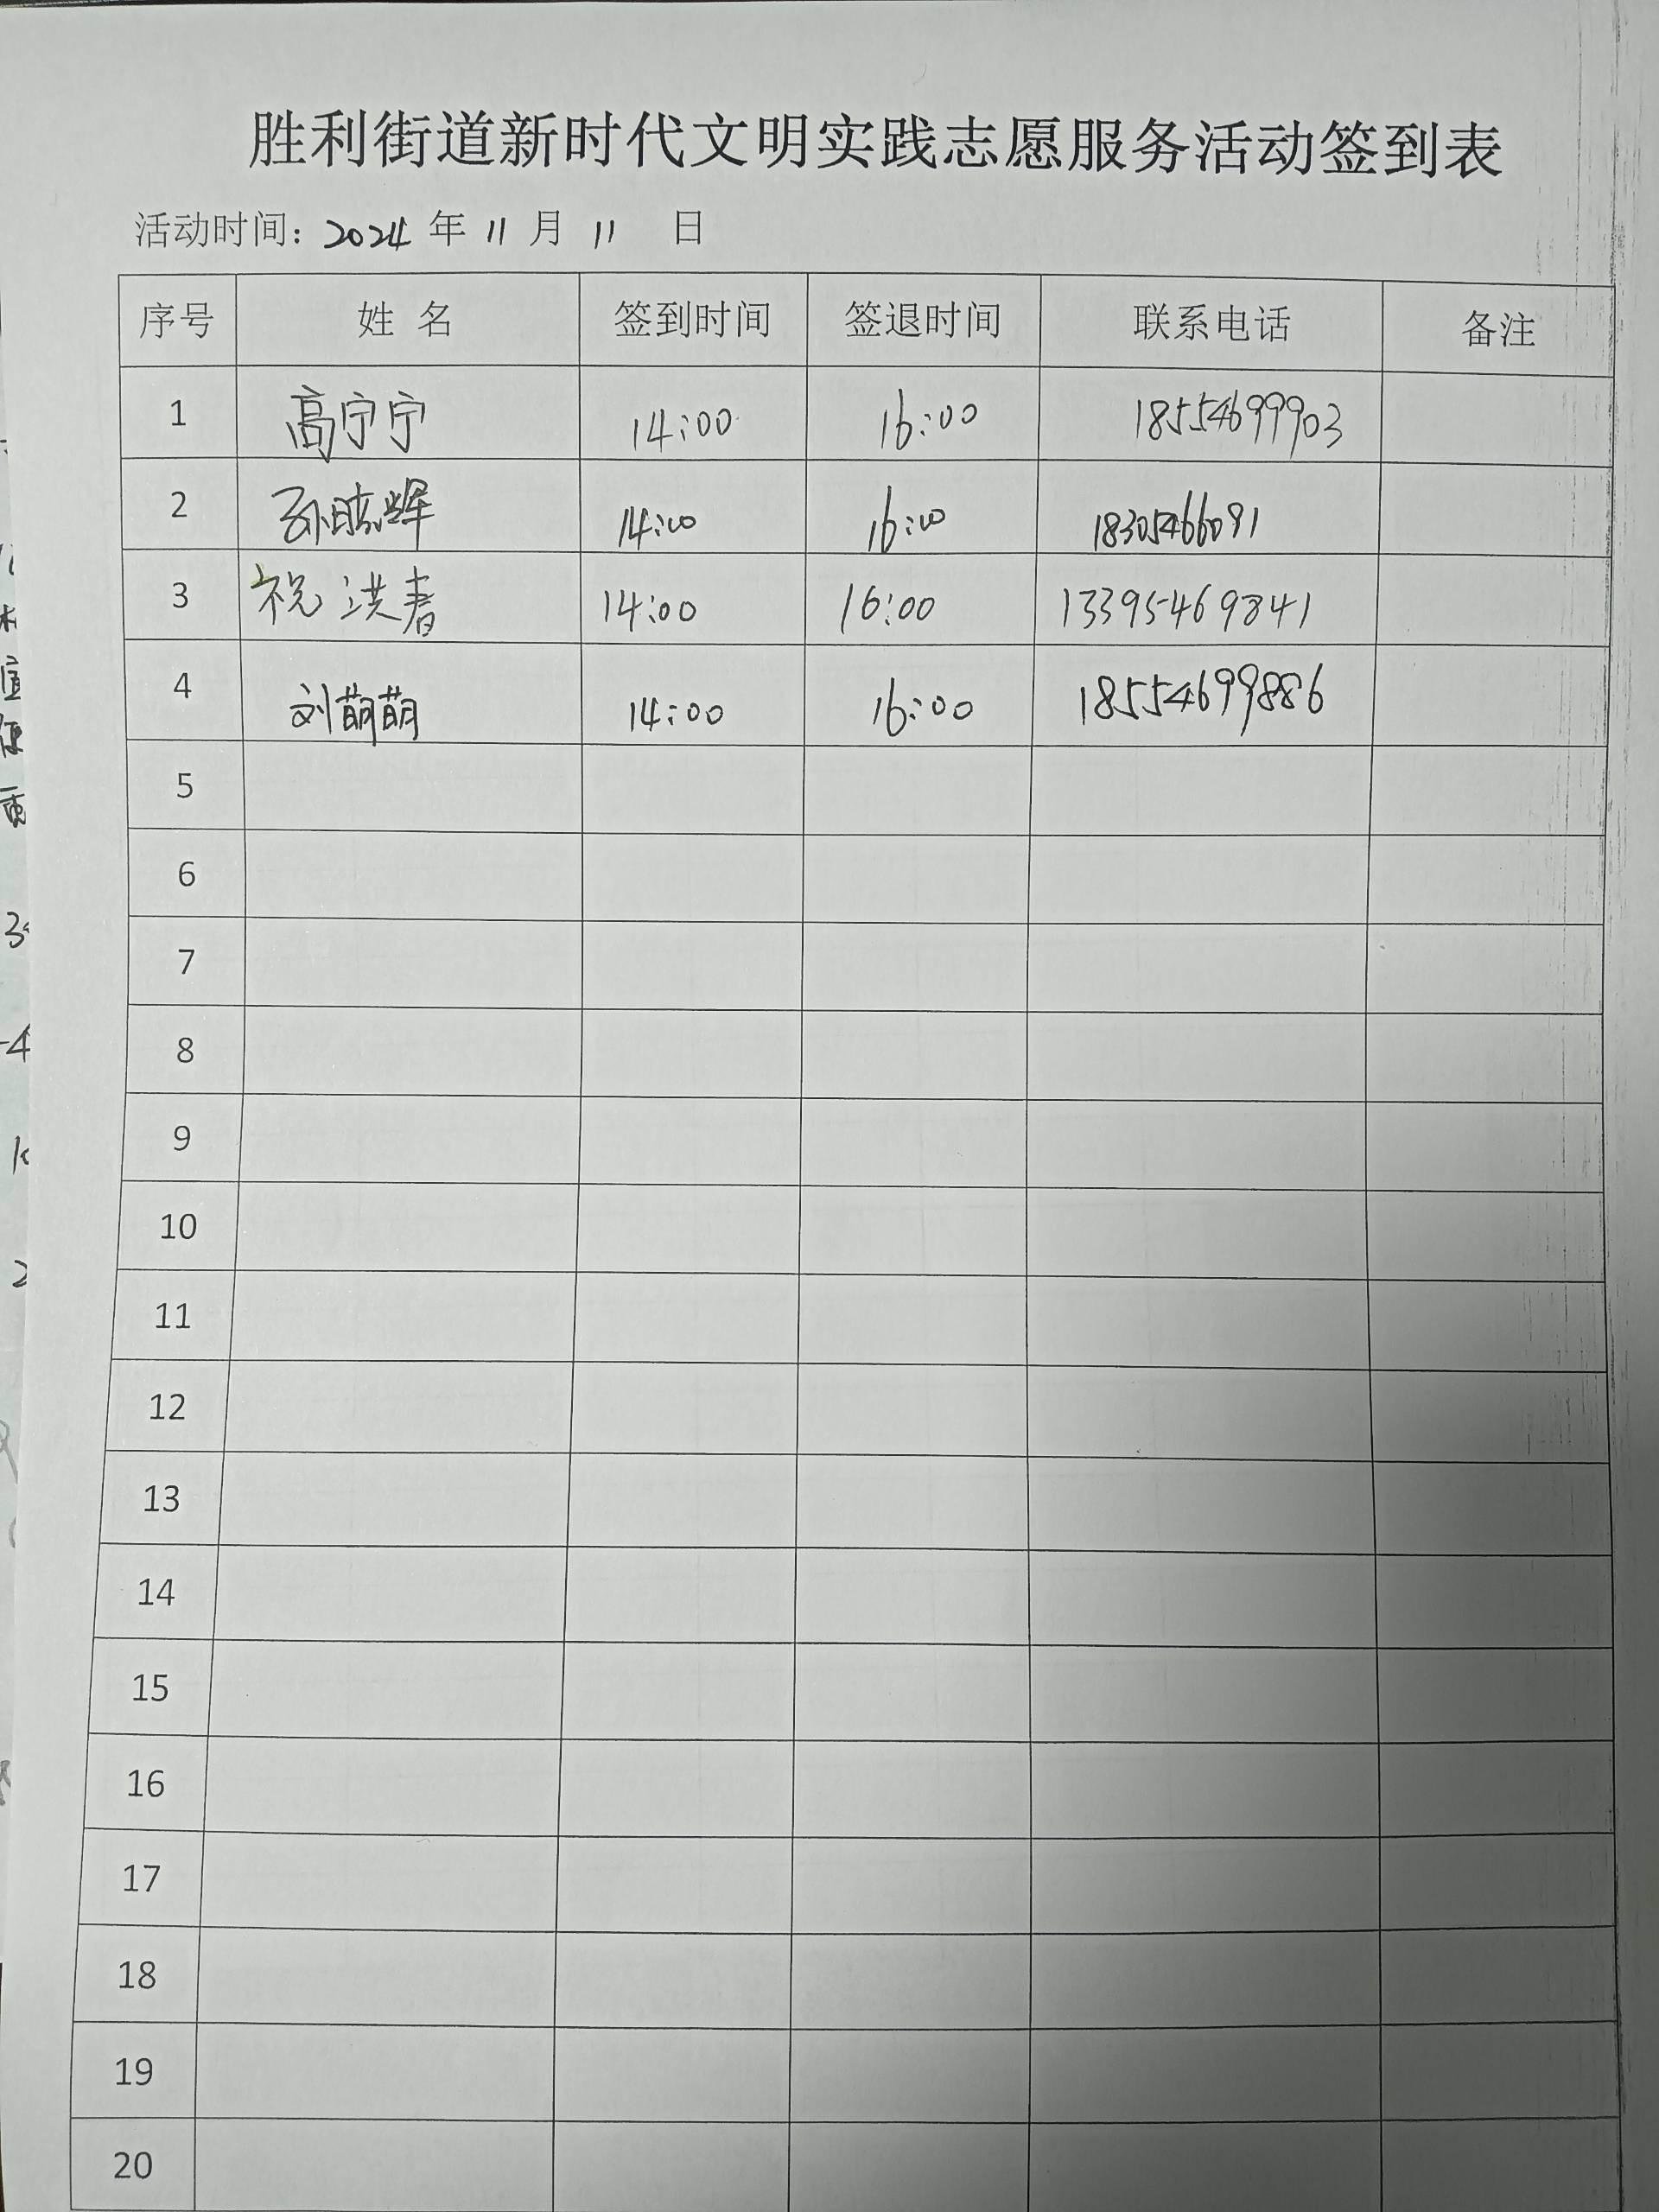 胜利街道新时代文明实践志愿服务活动签到表
活动时间：2024 年 11 月 11 日
序号 姓 名 签到时间 签退时间 联系电话 备注
1 高宁宁 14:00 16:00 18554699903
2 14:00 16:00 18305466091
3 祝洪春 14:00 16:00 13395469841
4 刘萌萌 14:00 16:00 18554699886
5
6
7
8
9
10
11
12
13
14
15
16
17
18
19
20